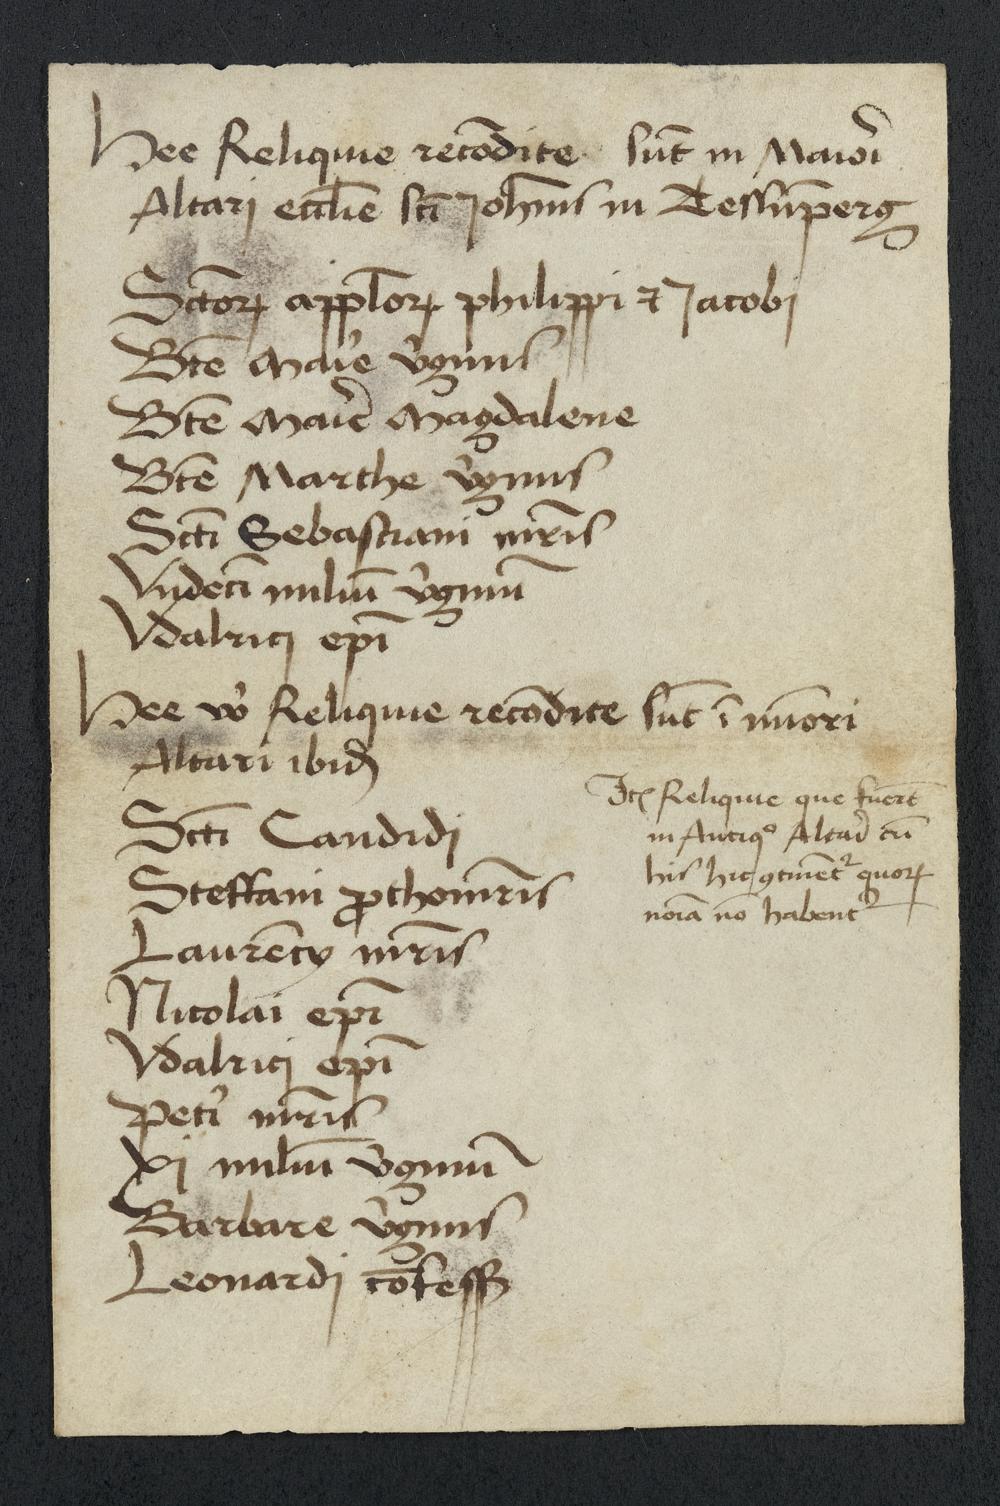 Hee Reliquie recōdite sūt in Maiori
Altari eccl̄ie sc̄i Joh̄nis in Dessūperg
Sctoꝝ applōꝝ philippi ⁊ Jacobi
Btē Marie v̓ginis
Btē Marie Magdalene
Btē Marthe v̓ginis
Sctī Sebastiani mr̄is
Vndeci miliū v̓ginū
Vdalrici ep̄i
Hee vo̓ Reliquie recōdite sūt ī mīori
Altari ibid
Sctī Candidi
Steffani ꝓthomr̄is
Laurēcy mr̄is
Nicolai ep̄i
Vdalrici ep̄i
Petri mr̄is
Xj miliū v̓ginū
Barbare v̓ginis
Leonardi cōfess
Itē Reliquie que fuert̄
in Antiqo Altari cū
his hic ꝯtinent᷑ quoꝝ
noīa nō habent᷑